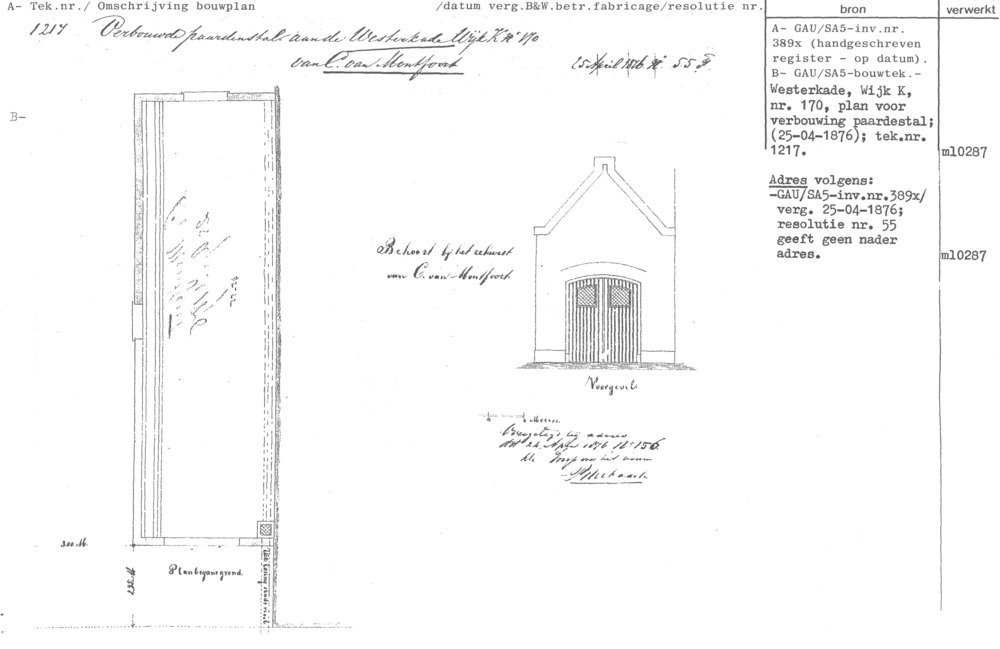 A- Tek.nr./ Omschrijving bouwplan /datum verg.B&W.betr.fabricage/resolutie nr.
1217 Verbouwde paardenstal aan de Westerkade Wijk K No 170
van C. van Montfoort
25 April 1876 No 55
B-
bron
verwerkt
A- GAU/SA5-inv.nr.
389x (handgeschreven
register - op datum).
B- GAU/SA5-bouwtek.-
Westerkade, Wijk K,
nr. 170, plan voor
verbouwing paardestal;
(25-04-1876); tek.nr.
1217.
ml0287
Adres volgens:
-GAU/SA5-inv.nr.389x/
verg. 25-04-1876;
resolutie nr. 55
geeft geen nader
adres.
ml0287
Behoort bij het rekwest
van C. van Montfoort
Voorgevel.
Meters.
bij advies
dd 24 April 1876 No 156
300 M.
Plan beganegrond.